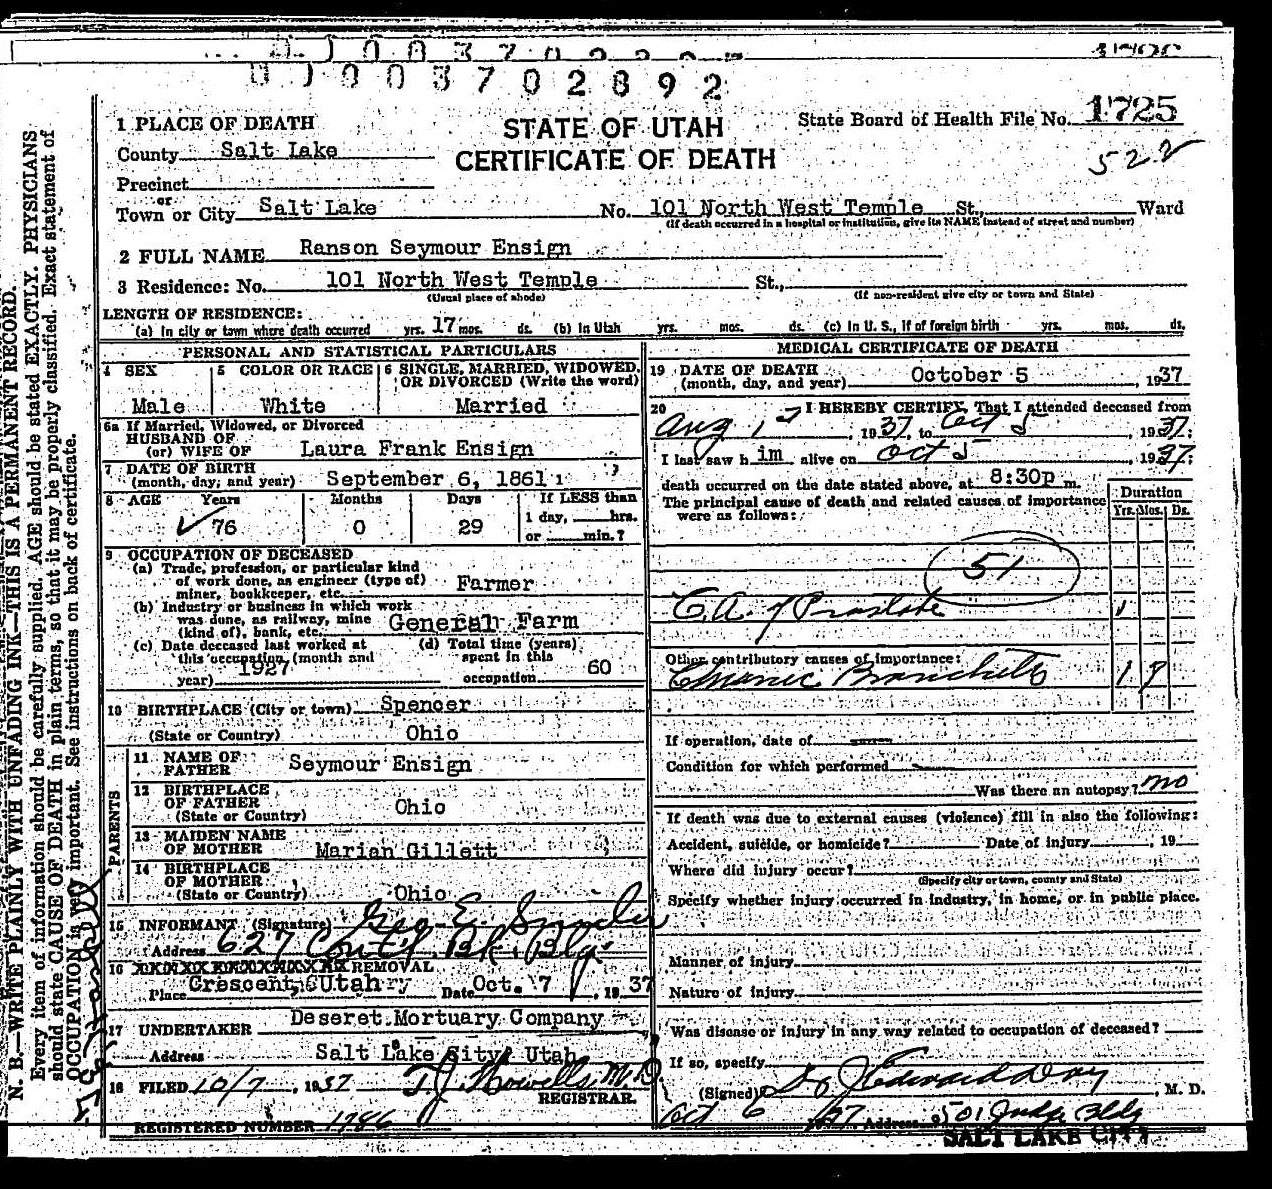 0 1 0 0 3 7 0 2 8 9 2
1 PLACE OF DEATH
STATE OF UTAH
CERTIFICATE OF DEATH
State Board of Health File No. 1725
522
County Salt Lake
Precinct
or
Town or City Salt Lake No. 101 North West Temple St., Ward
(If death occurred in a hospital or institution, give its NAME instead of street and number)
2 FULL NAME Ranson Seymour Ensign
3 Residence: No. 101 North West Temple St.,
(Usual place of abode) (If non-resident give city or town and State)
LENGTH OF RESIDENCE:
(a) In city or town where death occurred yrs. 17 mos. ds. (b) In Utah yrs. mos. ds. (c) In U. S., if of foreign birth yrs. mos. ds.
PERSONAL AND STATISTICAL PARTICULARS
4 SEX
Male
5 COLOR OR RACE
White
6 SINGLE, MARRIED, WIDOWED, OR DIVORCED (Write the word)
Married
6a If Married, Widowed, or Divorced
HUSBAND OF
(or) WIFE OF Laura Frank Ensign
7 DATE OF BIRTH
(month, day, and year) September 6, 1861
8 AGE Years Months Days If LESS than
76 0 29 1 day, hrs.
or min.?
9 OCCUPATION OF DECEASED
(a) Trade, profession, or particular kind
of work done, as engineer (type of)
miner, bookkeeper, etc. Farmer
(b) Industry or business in which work
was done, as railway, mine
(kind of), bank, etc. General Farm
(c) Date deceased last worked at
this occupation (month and
year) 1927
(d) Total time (years)
spent in this
occupation 60
10 BIRTHPLACE (City or town) Spencer
(State or Country) Ohio
PARENTS
11 NAME OF
FATHER Seymour Ensign
12 BIRTHPLACE
OF FATHER
(State or Country) Ohio
13 MAIDEN NAME
OF MOTHER Marian Gillett
14 BIRTHPLACE
OF MOTHER
(State or Country) Ohio
15 INFORMANT (Signature) Geo. E.
Address 627 Cont'l Bk. Bldg.
16 REMOVAL
Place Crescent, Utah Date Oct. 7, 1937
17 UNDERTAKER Deseret Mortuary Company
Address Salt Lake City, Utah
18 FILED 10/7, 1937 T. J. Howells, M.D.
REGISTRAR.
REGISTERED NUMBER 1786
MEDICAL CERTIFICATE OF DEATH
19 DATE OF DEATH
(month, day, and year) October 5, 1937
20 I HEREBY CERTIFY, That I attended deceased from
Aug 1, 1937, to Oct 5, 1937;
I last saw him alive on Oct 5, 1937;
death occurred on the date stated above, at 8:30p m.
The principal cause of death and related causes of importance
were as follows:
Duration
Yrs. Mos. Ds.
51
C.A. of Prostate 1
Other contributory causes of importance:
Chronic Bronchitis 1 9
If operation, date of
Condition for which performed
Was there an autopsy? no
If death was due to external causes (violence) fill in also the following:
Accident, suicide, or homicide? Date of injury , 19
Where did injury occur?
(Specify city or town, county and State)
Specify whether injury occurred in industry, in home, or in public place.
Manner of injury
Nature of injury
Was disease or injury in any way related to occupation of deceased?
If so, specify
(Signed) Dr J Edward Day, M. D.
Oct 6 1937 Address 501 Judge Bldg
SALT LAKE CITY
N. B.—WRITE PLAINLY WITH UNFADING INK—THIS IS A PERMANENT RECORD.
Every item of information should be carefully supplied. AGE should be stated EXACTLY. PHYSICIANS
should state CAUSE OF DEATH in plain terms, so that it may be properly classified. Exact statement of
OCCUPATION is very important. See instructions on back of certificate.